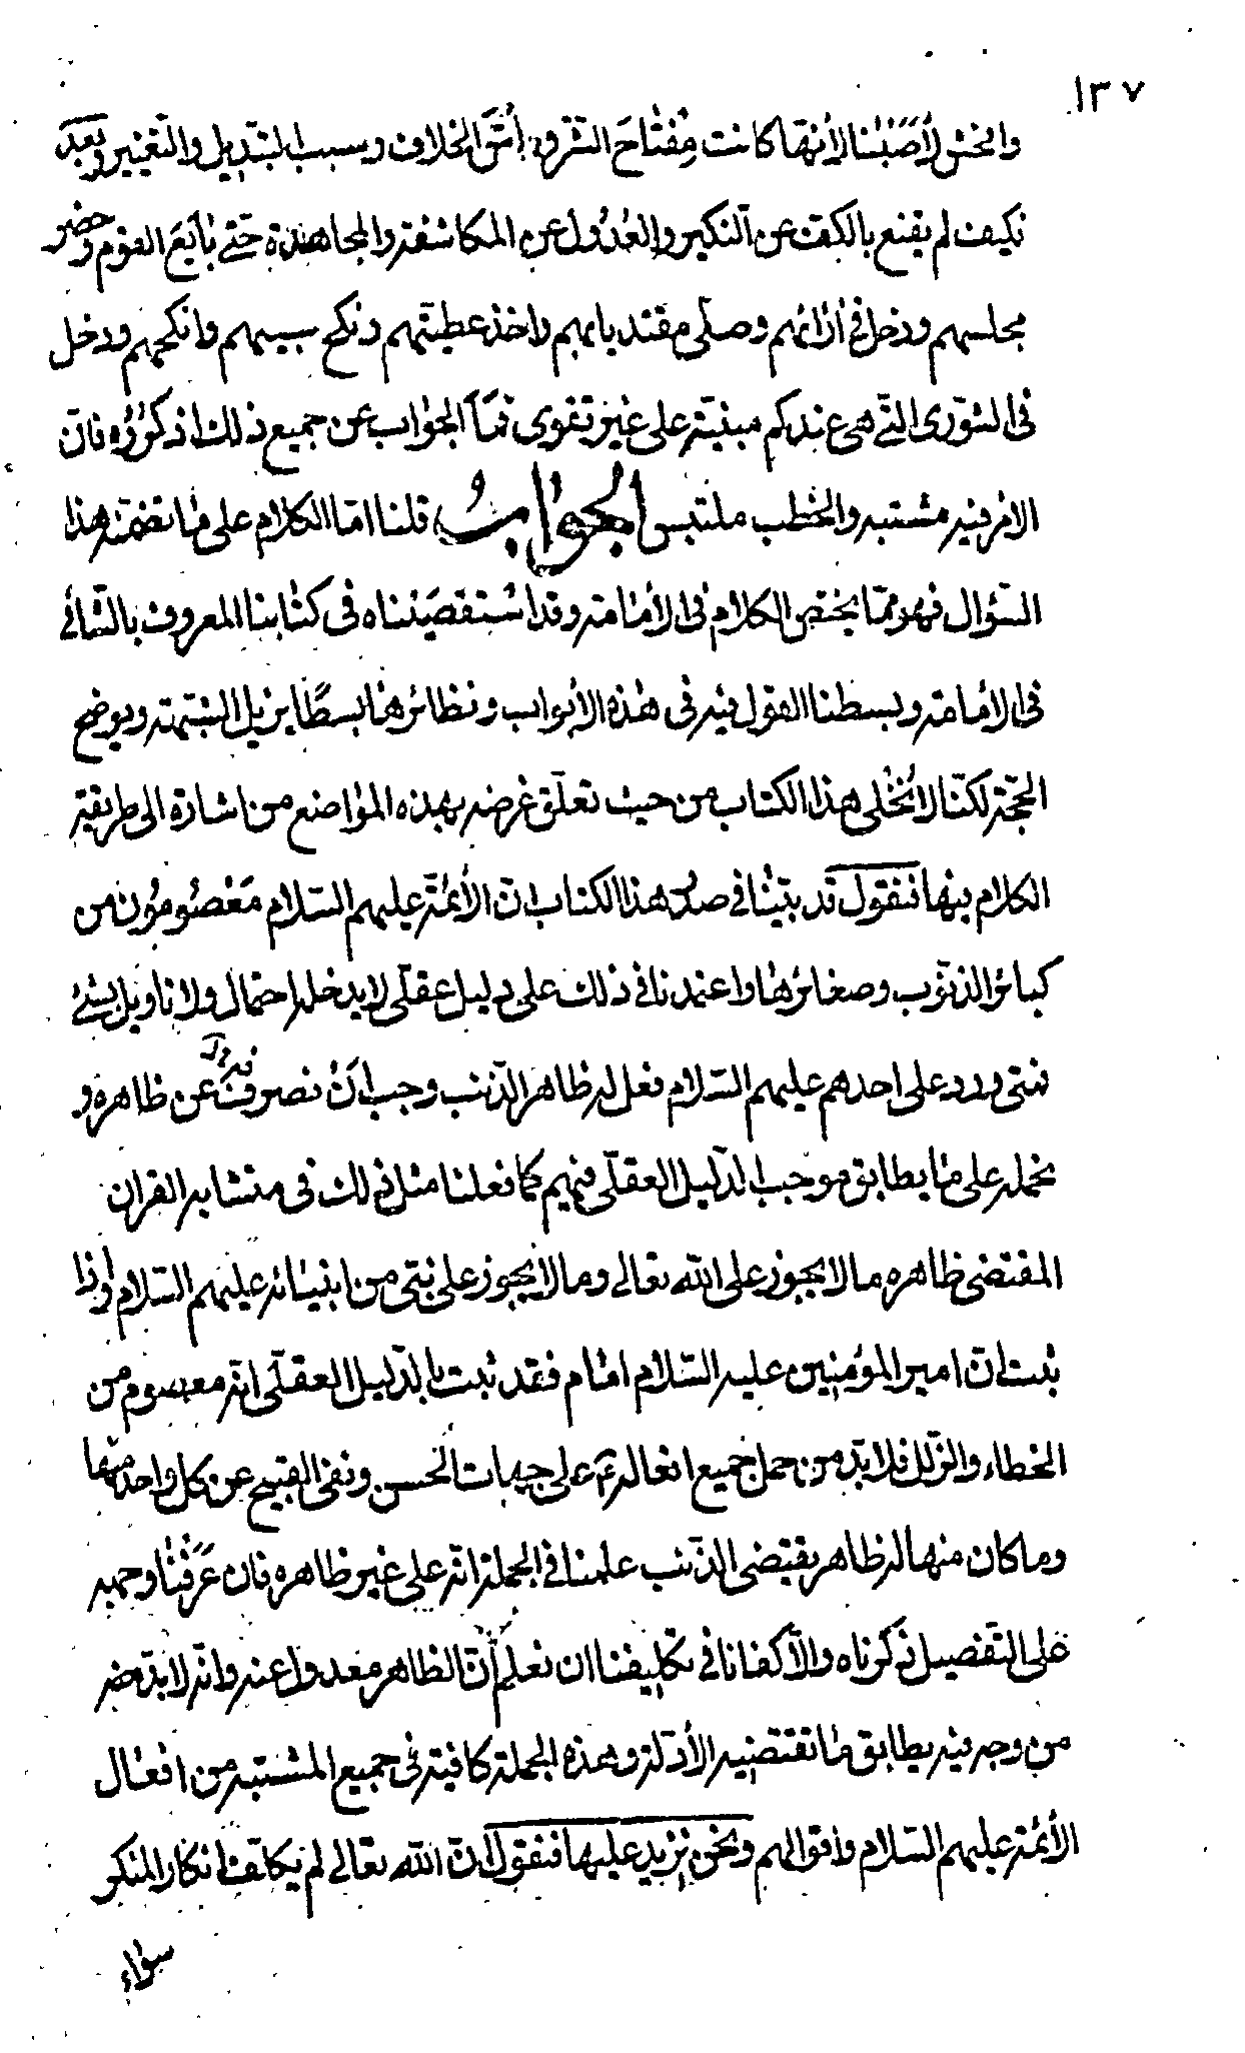 ١٣٧
وافحش لاصَبْنا لانها كانت مِفْتاحَ التفرق، أُسَّ الخلاف وسبب التبديل والتغيير وبَعْدَ
فكيف لم يقنع بالكفّ عن النكير والعُدُول عن المكاشفة والمجاهدة حتى بايَعَ القوم وحضر
مجلسهم ودخل في ارائهم وصلّى مقتديا بهم واخذ عطيتهم ونكح سبيهم وانكحهم ودخل
في الشورى التي هي عندكم مبنيّة على غير تقوى فمَا الجواب عن جميع ذلك اذكروه فان
الامر فيه مشتبه والخطب ملتبس الجوابُ قلنا اما الكلام على ما تضمنه هذا
السّؤال فهو ممّا يخصّ الكلام في الامامة وقد استقصَيْناه في كتابنا المعروف بالشّافي
في الامامة وبسطنا القول فيه في هذه الابواب ونظائرها بسطًا يزيل الشبهة ويوضح
الحجّة لكنّا لا نُخْلي هذا الكتاب من حيث تعلّق غرضه بهذه المواضع من اشارة الى طريقة
الكلام فيها فنقول قد بيّنّا في صدر هذا الكتاب انّ الأئمّة عليهم السّلام مَعْصُومُون من
كبائر الذنوب وصغائرها واعتمدنا في ذلك على دليل عقلي لا يدخله احتمال ولا تاويل بشئ
فمتى ورد على احدهم عليهم السّلام فعل له ظاهر الذنب وجب أنْ نصرفه عن ظاهره و
نحمله على ما يطابق موجب الدّليل العقلّي فيهم كما فعلنا مثل ذلك في متشابه القران
المقتضى ظاهره ما لا يجوز على الله تعالى وما لا يجوز على نبّى من انبيائه عليهم السّلام واذا
ثبت انّ امير المؤمنين عليه السّلام امام فقد ثبت بالدّليل العقلّي انّه معصوم من
الخطاء والزّلل فلا بدّ من حمل جميع افعاله ع على جهات الحسن ونفي القبيح عن كل واحد منها
وما كان منها له ظاهر يقتضى الذّنب علمنا في الجملة انّه على غير ظاهره فان عَرَفْنا وجهه
على التّفصيل ذكرناه والّا كفانا في تكليفنا ان نعلم انّ الظاهر معدول عنه وانه لا بدّ
من وجه فيه يطابق ما تقتضيه الأدلة وهذه الجملة كافية في جميع المشتبه من افعال
الأئمّة عليهم السّلام واقوالهم ونحن نزيد عليها فنقول انّ الله تعالى لم يكلّف انكار المنكر
سواء